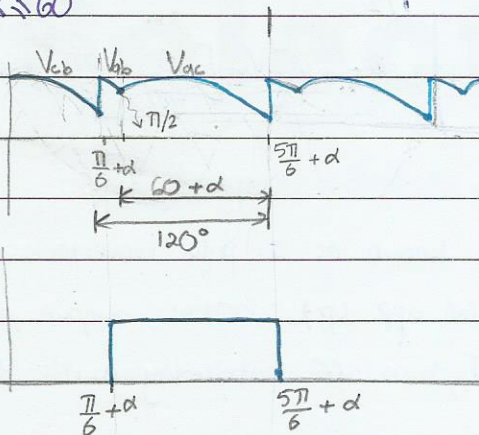 ≤60
Vcb Vab Vac
π/2
π/6 + α
5π/6 + α
60 + α
120°
π/6 + α
5π/6 + α